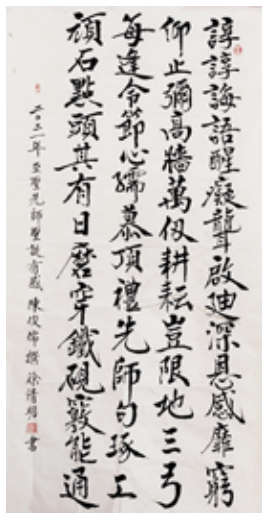 諄諄誨語醒癡聾啟迪深恩感靡窮
仰止彌高牆萬仭耕耘豈限地三弓
每逢令節心孺慕頂禮先師句琢工
頑石點頭其有日磨穿鐵硯竅能通
二〇二一年至聖先師聖誕有感 陳俊儒 撰 徐清 書